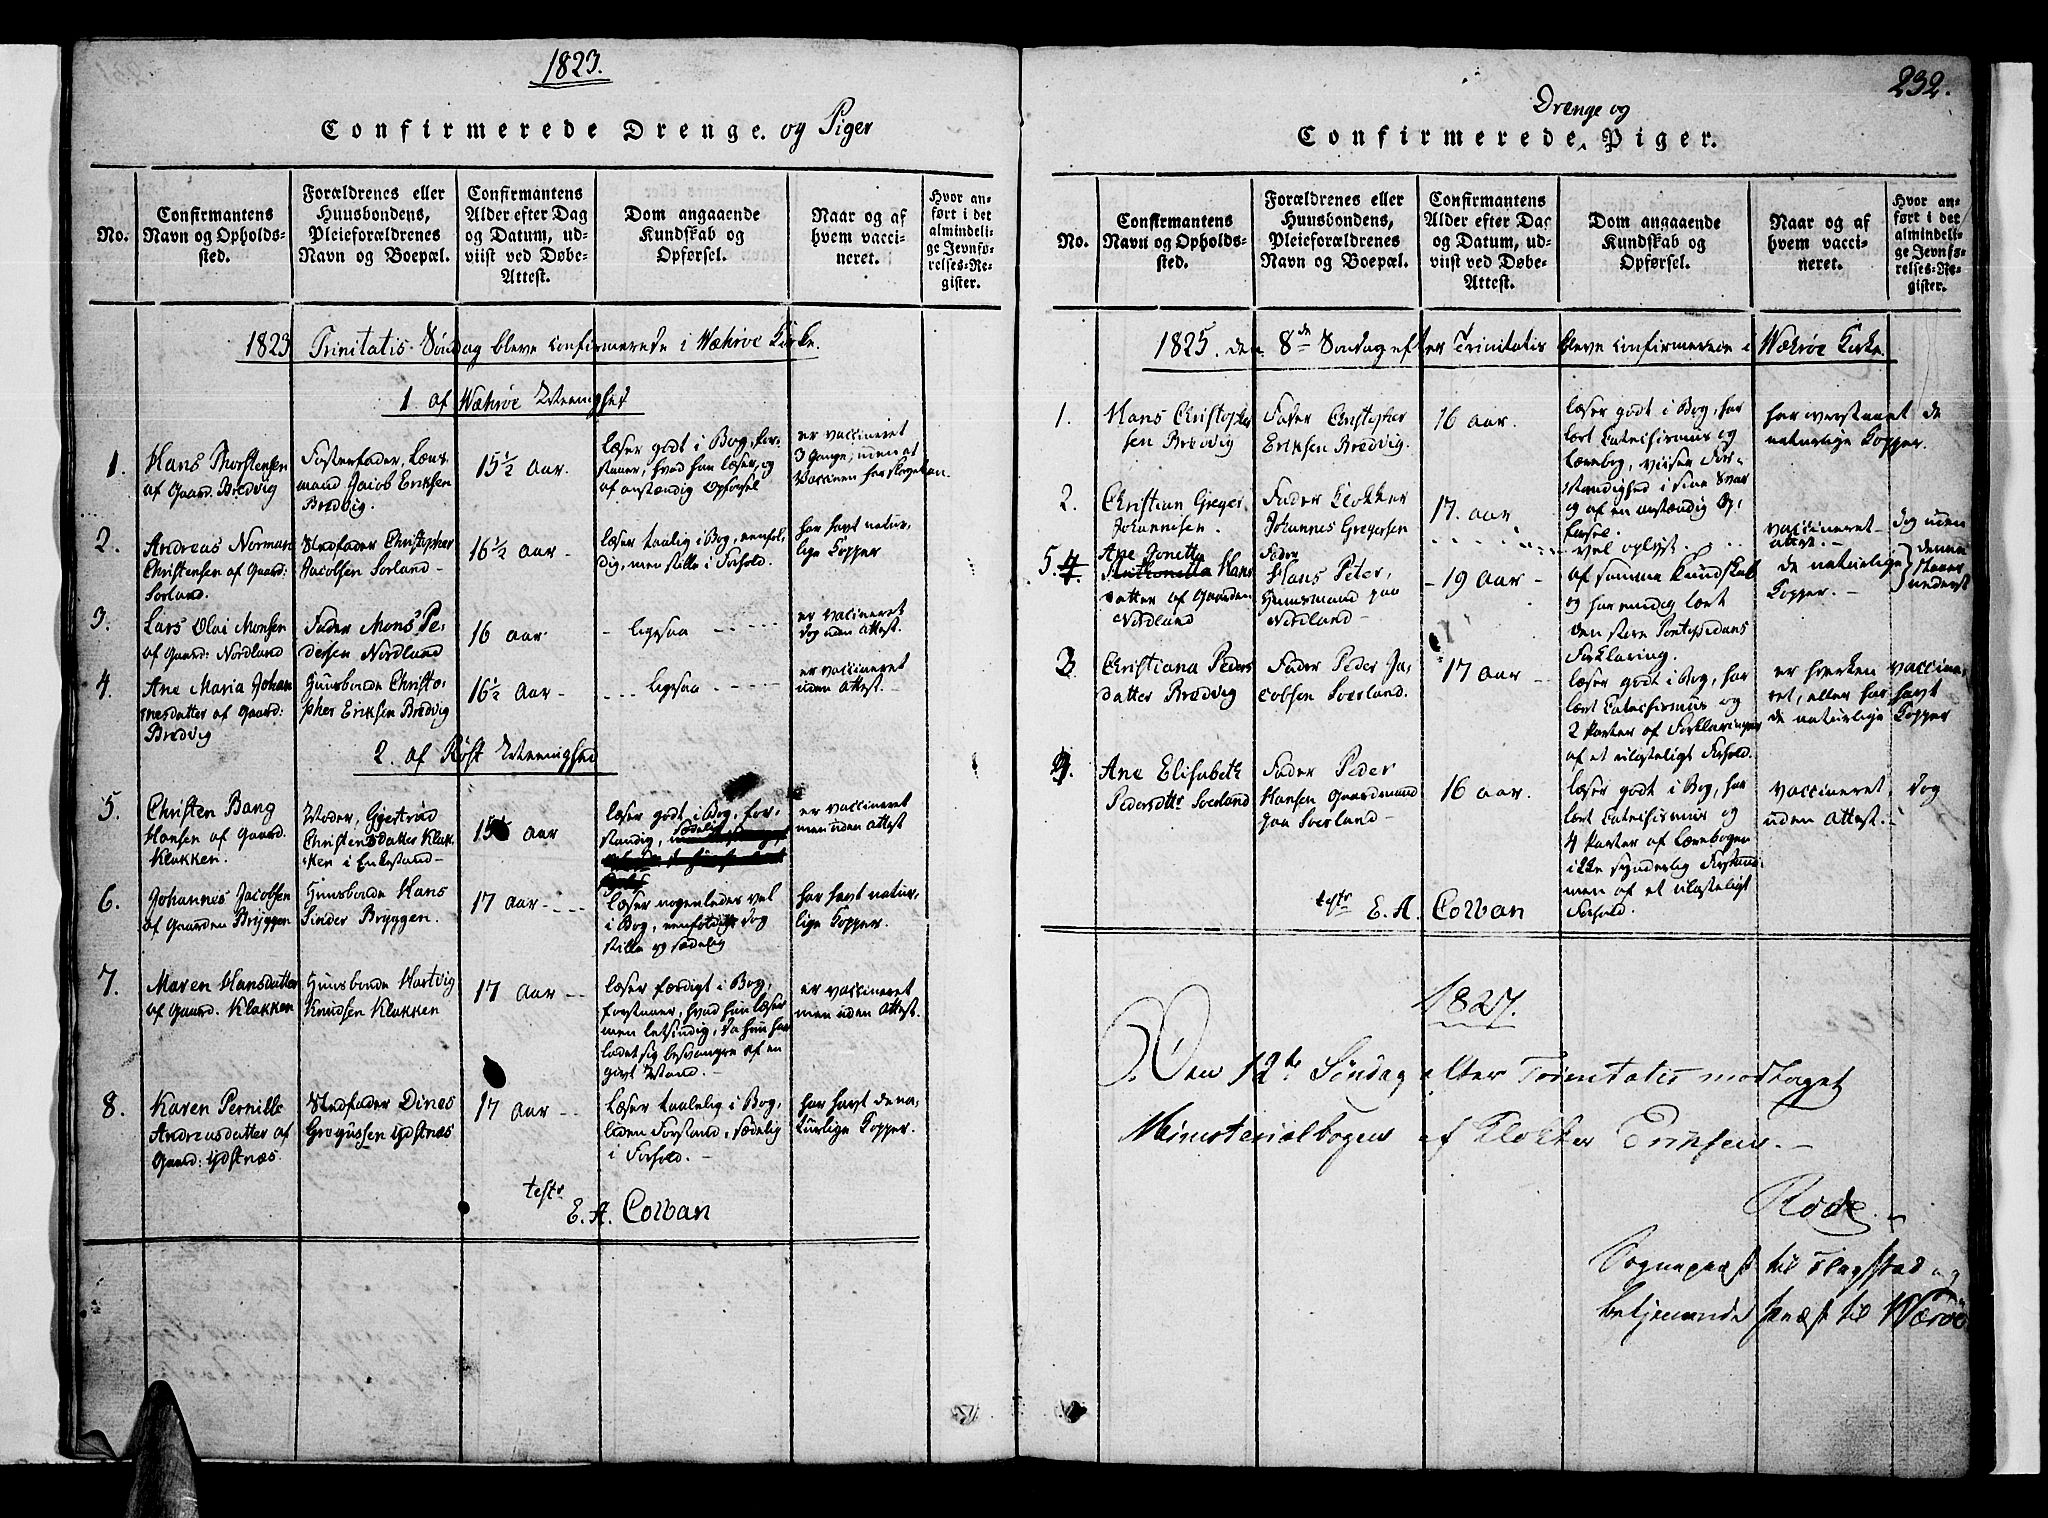 1823.
Confirmerede Drenge. og Piger
No.
Confirmantens
Navn og Opholds-
sted.
Forældrenes eller
Huusbondens,
Pleieforældrenes
Navn og Boepæl.
Confirmantens
Alder efter Dag
og Datum, ud-
viist ved Døbe-
Attest.
Dom angaaende
Kundskab og
Opførsel.
Naar og af
hvem vacci-
neret.
Hvor an-
ført i det
almindeli-
ge Jevnfø-
relses-Re-
gister.
1823 Trinitatis Søndag bleve confirmerede i Wæhrøe Kirke.
1 af Wæhrøe Menighed
1.
Hans Thorstensen
af Gaard. Bredvig
Fosterfader, Læns-
mand Jacob Eriksen
Bredvig.
15 1/2 Aar.
læser godt i Bog, for-
staaer, hvad han læser, og
af anstændig Opførsel
er vaccineret
3 Gange, uden at
Vaccinen har slaget an.
2.
Andreas Norman
Christensen af Gaard:
Sorland.
Stedfader Christopher
Jacobsen Sorland -
16 1/2 Aar -
læser taalig i Bog, eenfol-
dig, men stille i Forhold.
har havt natur-
lige Kopper
3.
Lars Olai Monsen
af Gaard: Nordland
Fader Mons Pe-
dersen Nordland
16 Aar
- ligesaa
er vaccineret
dog uden Attest.
4.
Ane Maria Johan
nesdatter af Gaard:
Bredvig
Huusbonde Christo-
pher Eriksen Bredvig
16 1/2 Aar -
ligesaa
er vaccineret
uden Attest.
2. af Røst Menighed
5.
Christen Bang
Hansen af Gaard.
Klakken.
Moder, Gjertrud
Christensdatter Klak-
ken i Enkestand -
15 Aar
læser godt i Bog, for-
standig, sædelig
er vaccineret
men uden Attest
6.
Johannes Jacobsen
af Gaarden Bryggen
Huusbonde Hans
Sinder Bryggen.
17 Aar
læser nogenledes vel
i Bog, eenfoldig dog
stille og sædelig
har havt natur-
lige Kopper.
7.
Maren Hansdatter
af Gaard. Klakken
Huusbonde Hartvig
Knudsen Klakken
17 Aar
læser færdigt i Bog,
forstaaer, hvad hun læser
men letsindig, da hun har
ladet sig besvangre af en
givt Mand. -
er vaccineret
men uden Attest.
8.
Karen Pernille
Andreasdatter af
Gaard: Ydstnæs.
Stedfader Dines
Gregussen Ydstnæs
17 Aar
læser taalelig i Bog,
liden Forstand, sædelig
i Forhold. -
har havt de na-
turlige Kopper.
testr
E. A. Colban
232.
Drenge og
Confirmerede Piger.
No.
Confirmantens
Navn og Opholds-
sted.
Forældrenes eller
Huusbondens,
Pleieforældrenes
Navn og Boepæl.
Confirmantens
Alder efter Dag
og Datum, ud-
viist ved Døbe-
Attest.
Dom angaaende
Kundskab og
Opførsel.
Naar og af
hvem vacci-
neret.
Hvor an-
ført i det
almindeli-
ge Jevnfø-
relses-Re-
gister.
1825. den 8de Søndag efter Trinitatis bleve confirmerede i Wæhrøe Kirke.
1.
Hans Christopher
sen Bredvig
Fader Christopher
Eriksen Bredvig.
16 aar.
læser godt i Bog, har
lært Catechismus og
Lærebog, viiser For-
standighed i sine Svar
og af en anstændig Op-
førsel.
har overstaaet de
naturlige Kopper.
2.
Christian Greger
Johannesen.
Fader Klokker
Johannes Gregersen
17. aar
vel oplyst
vaccineret dog uden
attest. -
5. 4
Ane Jonetta
Anthonetta Hans
datter af Gaarden
Nordland
Fader
Hans Peter,
Huusmand paa
Nordland -
- 19 Aar -
af samme Kundskab
og har endig lært
den store Pontoppidans
Forklaring.
de naturlige
Kopper. -
denne
staaer
nederst
3.
Christiana Peders
datter Bredvig
Fader Peder Ja-
cobsen Soerland.
17 Aar -
læser godt i Bog, har
lært Catechismus og
2 Parter af Forklaringen
af et ulasteligt Forhold.
er hverken vaccine-
ret, eller har havt
de naturlige Kopper
4.
Ane Elisabeth
Pedersdtr Soerland
Fader Peder
Hansen Gaardmand
paa Soerland -
16 aar.
læser godt i Bog, har
lært Catechismus og
4 Parter af Lærebogen
ikke synderlig Forstand
men af et ulasteligt
Forhold.
vaccineret, dog
uden Attest. -
testr
E. A. Colban
1827.
Den 12te Søndag efter Trinitatis modtaget
Ministerialbogen af Klokker Eriksen. -
Rode.
Sognepræst til Flagstad og
betjenende Præst til Wærøe